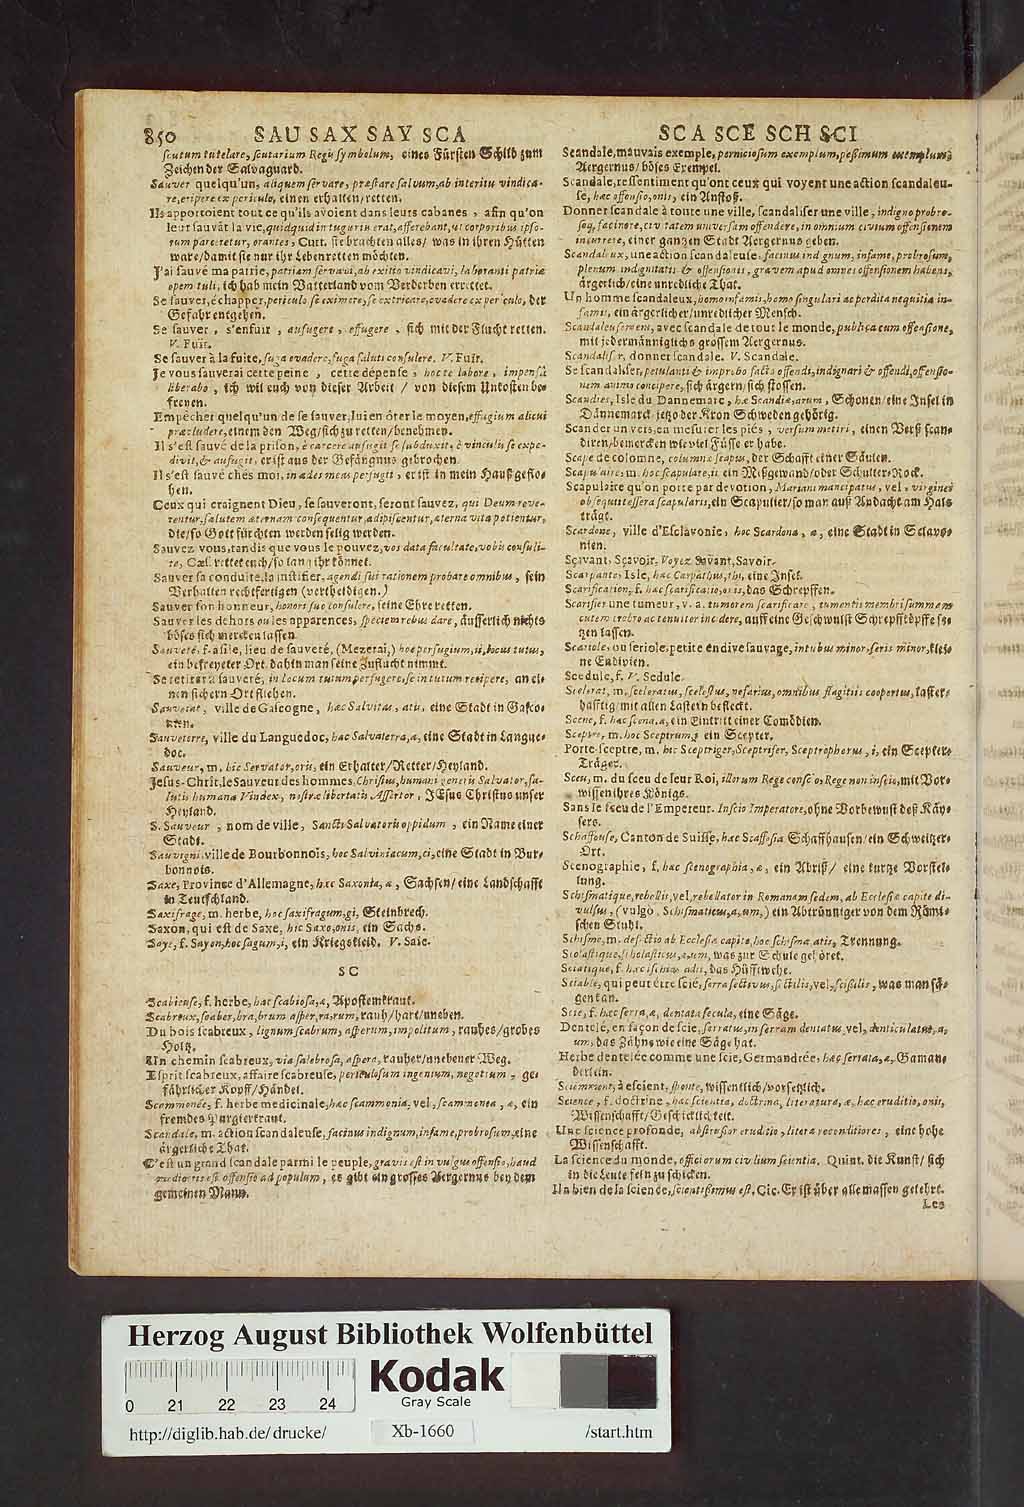 850 SAU SAX SAY SCA
scutum tutelare, scutarium Regis symbolum, eines Fürsten Schild zum
Zeichen der Salvaguard.
Sauver quelqu'un, aliquem servare, præstare salvum, ab interitu vindica-
re, eripere ex periculo, einen erhalten/ retten.
Ils apportoient tout ce qu'ils avoient dans leurs cabanes, afin qu'on
leur sauvât la vie, quidquid in tuguriis erat, afferebant, ut corporibus ipso-
rum parceretur, orantes, Curt. sie brachten alles/ was in ihren Hütten
ware/ damit sie nur ihr Leben retten möchten.
J'ai sauvé ma patrie, patriam servavi, ab exitio vindicavi, laboranti patriæ
opem tuli, ich hab mein Vatterland vom Verderben errettet.
Se sauver, échapper, periculo se eximere, se extricare, evadere ex periculo, der
Gefahr entgehen.
Se sauver, s'enfuir, aufugere, effugere, sich mit der Flucht retten.
V. Fuïr.
Se sauver à la fuite, fuga evadere, fuga saluti consulere. V. Fuïr.
Je vous sauverai cette peine, cette dépense, hoc te labore, impensâ
liberabo, ich wil euch von dieser Arbeit / von diesem Unkosten be-
freyen.
Empêcher quelqu'un de se sauver, lui en ôter le moyen, effugium alicui
præcludere, einem den Weg/ sich zu retten/ benehmen.
Il s'est sauvé de la prison, è carcere aufugit se subduxit, è vinculis se expe-
divit, & aufugit, er ist aus der Gefängnus gebrochen.
Il s'est sauvé chés moi, in ædes meas perfugit, er ist in mein Hauß geflo-
hen.
Ceux qui craignent Dieu, se sauveront, seront sauvez, qui Deum reve-
rentur, salutem æternam consequentur, adipiscentur, æterna vita potientur,
die/ so Gott fürchten werden selig werden.
Sauvez vous, tandis que vous le pouvez, vos data facultate, vobis consuli-
te, Cæs. rettet euch/ so lang ihr könnet.
Sauver sa conduite, la justifier, agendi sui rationem probare omnibus, sein
Verhalten rechtfertigen (vertheidigen.)
Sauver son honneur, honori suo consulere, seine Ehre retten.
Sauver les dehors ou les apparences, speciem rebus dare, äusserlich nichts
böses sich mercken lassen.
Sauveté, f. asile, lieu de sauveté, (Mezerai,) hoc perfugium, ii, locus tutus,
ein befreyeter Ort, dahin man seine Zuflucht nimmt.
Se retirer à sauveté, in locum tutum perfugere, se in tutum recipere, an ei-
nen sichern Ort fliehen.
Sauvetat, ville de Gascogne, hæc Salvitas, atis, eine Stadt in Gasco-
nien.
Sauveterre, ville du Languedoc, hæc Salvaterra, æ, eine Stadt in Langue-
doc.
Sauveur, m. hic Servator, oris, ein Erhalter/ Retter/ Heyland.
Jesus-Chrit, le Sauveur des hommes, Christus, humani generis Salvator, sa-
lutis humanæ Vindex, nostræ libertatis Assertor, JEsus Christus unser
Heyland.
S. Sauveur, nom de ville, Sancti Salvatoris oppidum, ein Name einer
Stadt.
Sauvigni, ville de Bourbonnois, hoc Salviniacum, ci, eine Stadt in Bur-
bonnois.
Saxe, Province d'Allemagne, hæc Saxonia, æ, Sachsen/ eine Landschafft
in Teutschland.
Saxifrage, m. herbe, hoc saxifragum, gi, Steinbrech.
Saxon, qui est de Saxe, hic Saxo, onis, ein Sachs.
Saye, f. Sayon, hoc sagum, i, ein Kriegskleid, V. Saie.
SC
Scabieuse, f. herbe, hæc scabiosa, æ, Apostemkraut.
Scabreux, scaber, bra, brum asper, ra, rum, rauh/ hart/ uneben.
Du bois scabreux, lignum scabrum, asperum, impolitum, rauhes/ grobes
Holtz.
Un chemin scabreux, via salebrosa, aspera, rauher/ unebener Weg.
Esprit scabreux, affaire scabreuse, periculosum ingenium, negotium, ge-
fährlicher Kopff/ Händel.
Scammonée, f. herbe medicinale, hæc scammonia, vel, scammonea, æ, ein
fremdes Purgierkraut.
Scandale, m. action scandaleuse, facinus indignum, infame, probrosum, eine
ärgerliche That.
C'est un grand scandale parmi le peuple, gravis est in vulgus offensio, haud
mediocris est offensio ad populum, es gibt ein grosses Aergernus bey dem
gemeinen Mann.
SCA SCE SCH SCI
Scandale, mauvais exemple, perniciosum exemplum, pessimum exemplum,
Aergernus/ böses Exempel.
Scandale, ressentiment qu'ont ceux qui voyent une action scandaleu-
se, hæc offensio, onis, ein Anstoß.
Donner scandale à toute une ville, scandaliser une ville, indigno probro-
soq, facinore, civitatem universam offendere, in omnium civium offensionem
incurrere, einer gantzen Stadt Aergernus geben.
Scandaleux, une action scandaleuse, facinus indignum, infame, probrosum,
plenum indignitatis & offensionis, gravem apud omnes offensionem habens,
ärgerlich/ eine unredliche That.
Un homme scandaleux, homo infamis, homo singulari ac perdita nequitia in-
famis, ein ärgerlicher/ unredlicher Mensch.
Scandaleusement, avec scandale de tout le monde, publica cum offensione,
mit jedermänniglichs grossem Aergernus.
Scandaliser, donner scandale. V. Scandale.
Se scandaliser, petulanti & improbo facto offendi, indignari & offendi, offensio-
nem animo concipere, sich ärgern/ sich stossen.
Scandies, Isle du Dannemarc, hæ Scandiæ, arum, Schonen/ eine Insel in
Dännemarck jetzo der Kron Schweden gehörig.
Scander un vers, en mesurer les piés, versum metiri, einen Verß scan-
diren/ bemercken wie viel Füsse er habe.
Scape de colomne, columnæ scapus, der Schafft einer Säulen.
Scapulaire, m. hoc scapulare, ii, ein Meßgewand/ oder Schulter-Rock.
Scapulaire qu'on porte par devotion, Mariani mancipatus, vel, virginei
obsequii tessera scapularis, ein Scapulier/ so man auß Andacht am Hals
trägt.
Scardone, ville d'Esclavonie, hæc Scardona, æ, eine Stadt in Sclavo-
nien.
Sçavant, Sçavoir, Voyez Savant, Savoir.
Scarpanto, Isle, hæc Carpathus, thi, eine Insel.
Scarification, f. hæc scarificatio, onis, das Schrepffen.
Scarifier une tumeur, v. a. tumorem scarificare, tumentis membri summam
cutem crebro ac tenuiter incidere, auff eine Geschwulst Schrepffköpffe se-
tzen lassen.
Scariole, ou seriole, petite endive sauvage, intubus minor, seris minor, klei-
ne Endivien.
Scedule, f. V. Sedule.
Scelerat, m. sceleratus, scelestus, nefarius, omnibus flagitiis coopertus, laster-
hafftig/ mit allen Lastern befleckt.
Scene, f. hæc scena, æ, ein Eintritt einer Comödien.
Sceptre, m. hoc Sceptrum, i, ein Scepter.
Porte-sceptre, m. hic Sceptriger, Sceptrifer, Sceptrophorus, i, ein Scepter-
Träger.
Sceu, m. du sceu de leur Roi, illorum Rege conscio, Rege non inscio, mit Vor-
wissen ihres Königs.
Sans le sceu de l'Empereur, Inscio Imperatore, ohne Vorbewust deß Käy-
sers.
Schaffouse, Canton de Suisse, hæc Scaffosia Schaffhausen/ ein Schweitzer-
Ort.
Scenographie, f. hæc scenographia, æ, ein Abriß/ eine kurtze Vorstel-
lung.
Schismatique, rebellis, vel, rebellator in Romanam sedem, ab Ecclesiæ capite di-
vulsus, (vulgò, Schismaticus, a, um,) ein Abtrünniger von dem Römi-
schen Stuhl.
Schisme, m. defectio ab Ecclesiæ capite, hoc schisma, atis, Trennung.
Scolastique, scholasticus, a, um, was zur Schule gehöret.
Sciatique, f. hæc ischias, adis, das Hüfftwehe.
Sciable, qui peut être scié, serra sectivus, sectilis, vel, scissilis, was man sä-
gen kan.
Scie, f. hæc serra, æ, dentata secula, eine Säge.
Dentelé, en façon de scie, serratus, in serram dentatus, vel, denticulatus, a,
um, das Zähn wie eine Säge hat.
Herbe dentelée comme une scie, Germandrée, hæc serrata, æ, Gaman-
derlein.
Sciemment, à escient, sponte, wissentlich/ vorsetzlich.
Science, f. doctrine, hæc scientia, doctrina, literatura, æ, hæc eruditio, onis,
Wissenschafft/ Geschicklichkeit.
Une science profonde, abstrusior eruditio, literæ reconditiores, eine hohe
Wissenschafft.
La science du monde, officiorum civilium scientia. Quint. die Kunst/ sich
in die Leute fein zu schicken.
Un bien de la science, scientissimus est, Cic. Er ist über alle massen gelehrt.
Les
Herzog August Bibliothek Wolfenbüttel
Kodak
Gray Scale
0 21 22 23 24
http://diglib.hab.de/drucke/ Xb-1660 /start.htm